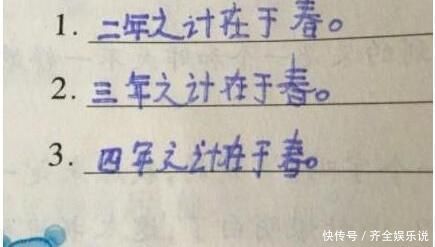 1. 二年之计在于春。
2. 三年之计在于春。
3. 四年之计在于春。
快传号/齐全娱乐说